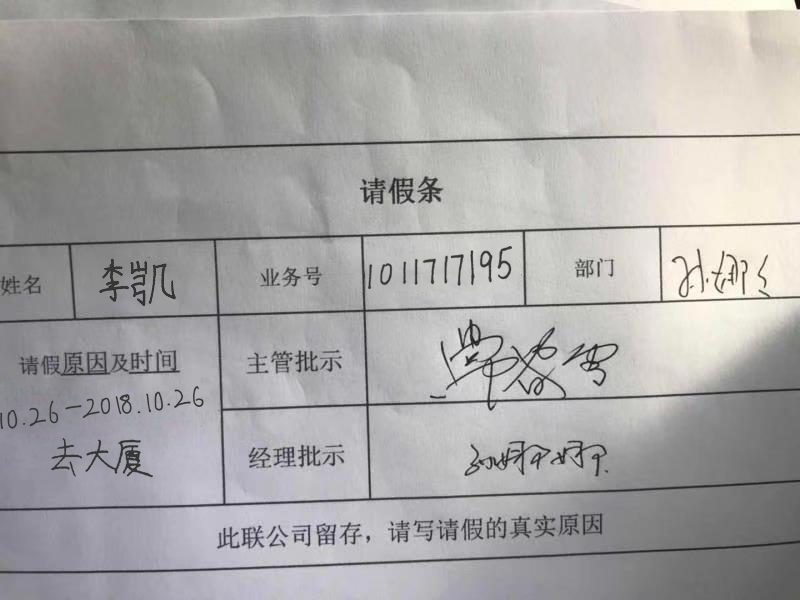 请假条
姓名 李凯 业务号 1011717195 部门 孙娜
请假原因及时间 主管批示
10.26-2018.10.26
去大厦 经理批示
此联公司留存，请写请假的真实原因